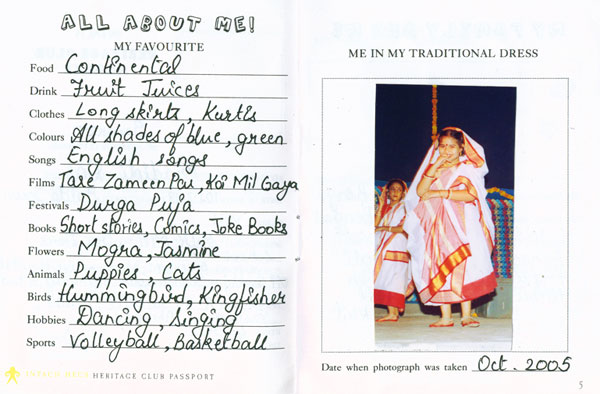 ALL ABOUT ME!
MY FAVOURITE
Food Continental
Drink Fruit Juices
Clothes Long skirts, Kurtis
Colours All shades of blue, green
Songs English songs
Films Tare Zameen Par, Koi Mil Gaya
Festivals Durga Puja
Books Short stories, Comics, Joke Books
Flowers Mogra, Jasmine
Animals Puppies, Cats
Birds Hummingbird, Kingfisher
Hobbies Dancing, Singing
Sports Volleyball, Basketball
INTACH HECS HERITAGE CLUB PASSPORT
ME IN MY TRADITIONAL DRESS
Date when photograph was taken Oct. 2005
5